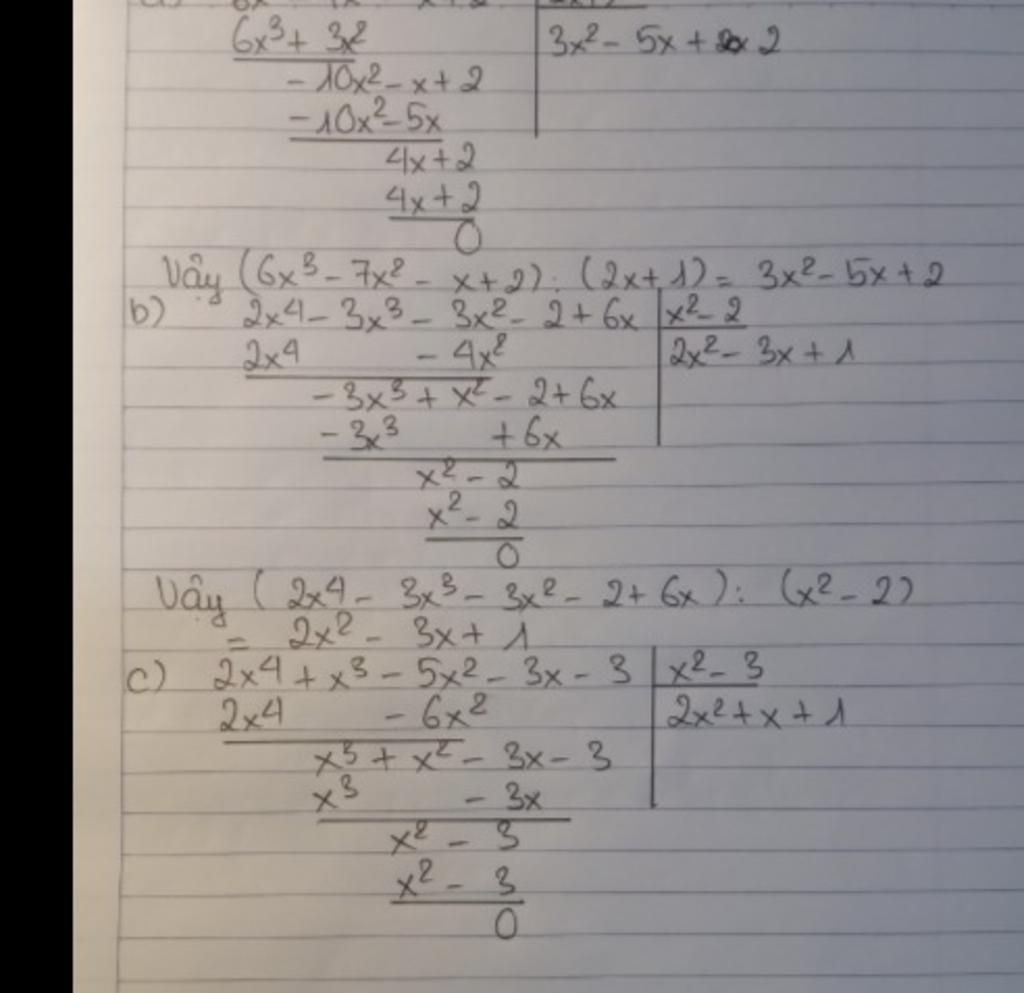 6x³ + 3x² | 3x² - 5x + 2
- 10x² - x + 2
- 10x² - 5x
4x + 2
4x + 2
0
Vậy (6x³ - 7x² - x + 2) : (2x + 1) = 3x² - 5x + 2
b) 2x⁴ - 3x³ - 3x² - 2 + 6x | x² - 2
2x⁴ - 4x² | 2x² - 3x + 1
- 3x³ + x² - 2 + 6x
- 3x³ + 6x
x² - 2
x² - 2
0
Vậy (2x⁴ - 3x³ - 3x² - 2 + 6x) : (x² - 2)
= 2x² - 3x + 1
c) 2x⁴ + x³ - 5x² - 3x - 3 | x² - 3
2x⁴ - 6x² | 2x² + x + 1
x³ + x² - 3x - 3
x³ - 3x
x² - 3
x² - 3
0